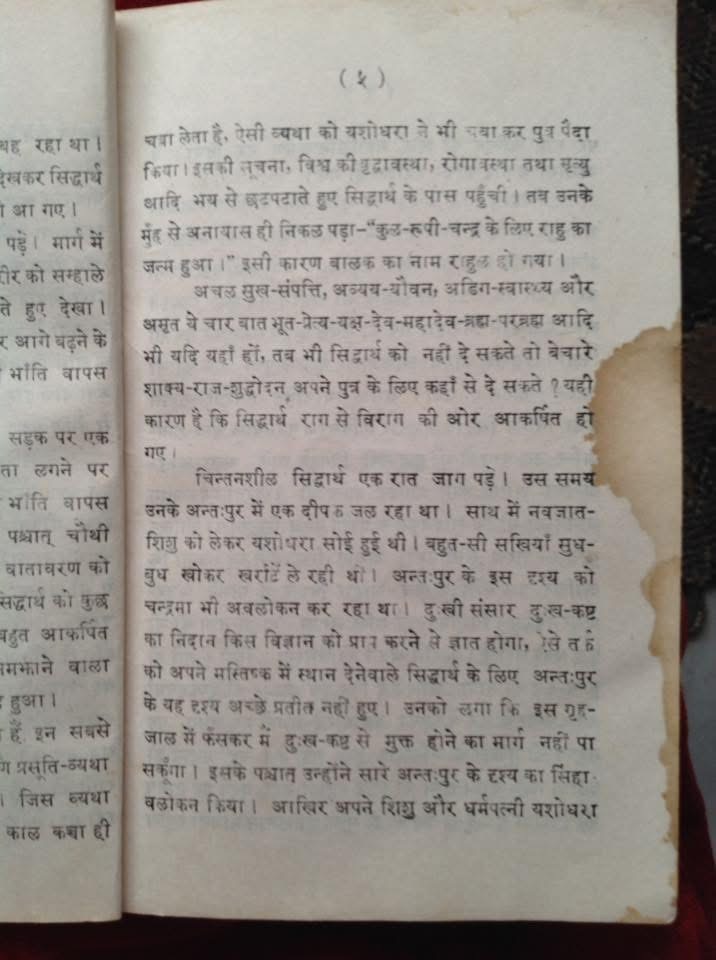 बह रहा था।
देखकर सिद्धार्थ
आ गए।
पड़े। मार्ग में
को सम्हाले
हुए देखा।
आगे बढ़ने के
भाँति वापस
सड़क पर एक
लगने पर
भाँति वापस
पश्चात् चौथी
वातावरण को
सिद्धार्थ को कुछ
बहुत आकर्षित
समझाने वाला
हुआ।
हैं, इन सबसे
प्रसूति-व्यथा
। जिस व्यथा
काल कवा ही
( ५ )
चबा लेता है, ऐसी व्यथा को यशोधरा ने भी चबा कर पुत्र पैदा
किया। इसकी सूचना, विश्व की वृद्धावस्था, रोगावस्था तथा मृत्यु
आदि भय से छटपटाते हुए सिद्धार्थ के पास पहुँची। तब उनके
मुँह से अनायास ही निकल पड़ा-“कुल-रूपी-चन्द्र के लिए राहु का
जन्म हुआ।” इसी कारण बालक का नाम राहुल हो गया।
अचल सुख-संपत्ति, अव्यय-यौवन, अडिग-स्वास्थ्य और
अमृत ये चार बात भूत-प्रेत्य-यक्ष-देव-महादेव-ब्रह्म-परब्रह्म आदि
भी यदि यहाँ हों, तब भी सिद्वार्थ को नहीं दे सकते तो बेचारे
शाक्य-राज-शुद्धोदन अपने पुत्र के लिए कहाँ से दे सकते ? यही
कारण है कि सिद्धार्थ राग से विराग की ओर आकर्षित हो
गए।
चिन्तनशील सिद्धार्थ एक रात जाग पड़े। उस समय
उनके अन्तःपुर में एक दीपक जल रहा था। साथ में नवजात-
शिशु को लेकर यशोधरा सोई हुई थी। बहुत-सी सखियाँ सुध-
बुध खोकर खर्राटें ले रही थीं। अन्तःपुर के इस दृश्य को
चन्द्रमा भी अवलोकन कर रहा था। दुःखी संसार दुःख-कष्ट
का निदान किस विज्ञान को प्राप्त करने से ज्ञात होगा, ऐसे तर्क
को अपने मस्तिष्क में स्थान देनेवाले सिद्धार्थ के लिए अन्तःपुर
के यह दृश्य अच्छे प्रतीत नहीं हुए। उनको लगा कि इस गृह-
जाल में फँसकर मैं दुःख-कष्ट से मुक्त होने का मार्ग नहीं पा
सकूँगा। इसके पश्चात् उन्होंने सारे अन्तःपुर के दृश्य का सिंहा
वलोकन किया। आखिर अपने शिशु और धर्मपत्नी यशोधरा